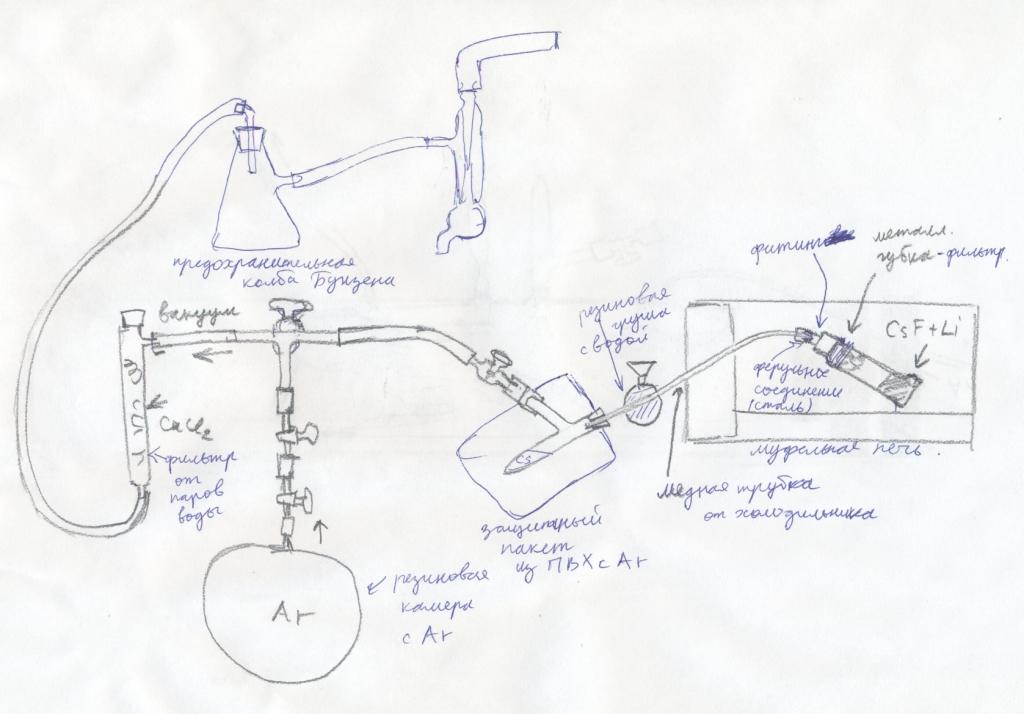 предохранительная
колба Бунзена
вакуум
CaCl₂
фильтр
от
паров
воды
Ar
резиновая
камера
с Ar
Cs
защитный
пакет
из ПВХ с Ar
резиновая
груша
с водой
медная трубка
от холодильника
фитинг
металл.
губка-фильтр.
CsF+Li
ферульное
соединение
(сталь)
муфельная печь.